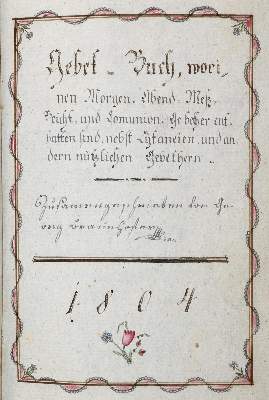 Gebet = Buch, wori=
nen Morgen. Abend. Meß.
Beicht, und Comunion. Gebether ent
halten sind, nebst Lytaneien, und an
dern nützlichen Gebethern ..
Zusamengeschrieben von Ge=
org
1804